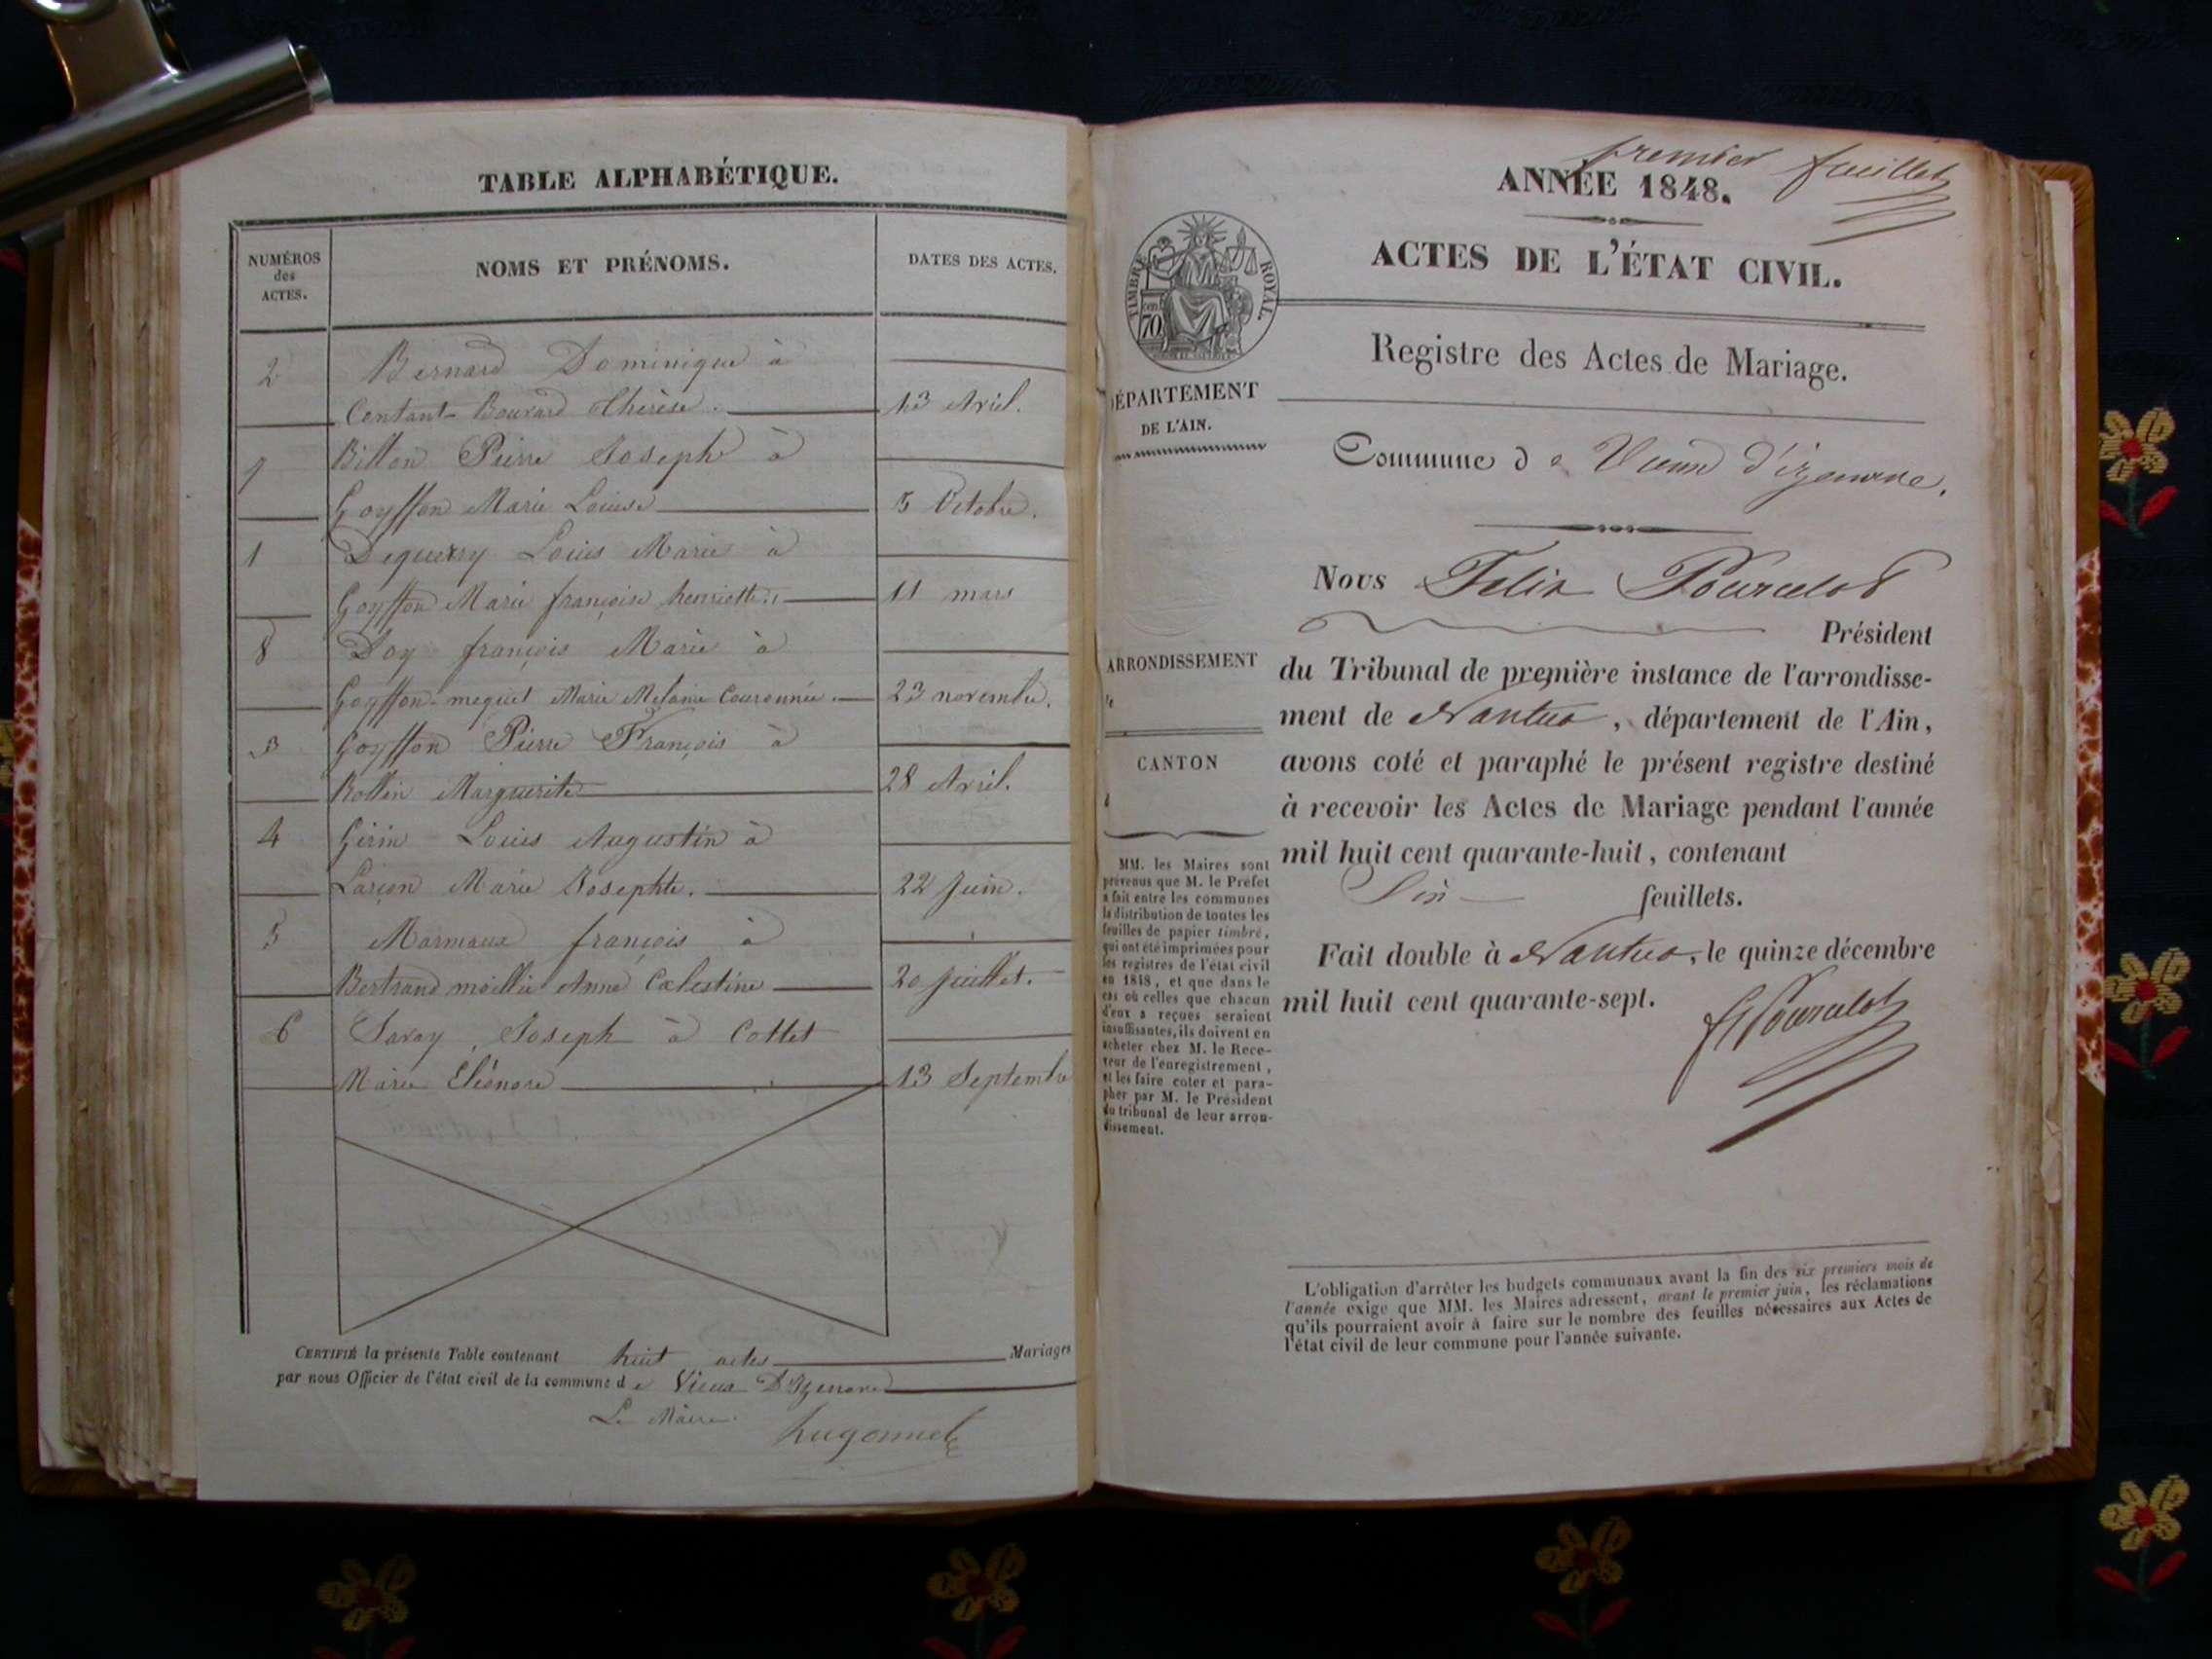 TABLE ALPHABÉTIQUE.
NUMÉROS
des
ACTES.
NOMS ET PRÉNOMS.
DATES DES ACTES.
2 Bernard Dominique à
Contant-Bouvard Thérèse. 13 Avril.
7 Billon Pierre Joseph à
Goyffon Marie Louise 5 Octobre.
1 Dequerry Louis Marie à
Goyffon Marie françoise henriette. 11 mars
8 Doy françois Marie à
Goyffon-mequet Marie Melanie Couronnée. 23 novembre.
3 Goyffon Pierre François à
Rollin Marguerite 28 Avril.
4 Girin Louis Augustin à
Larçon Marie Josephte. 22 Juin.
5 Marmaux françois à
Bertrand moillie Anne Cælestine 20 juillet.
6 Savay, Joseph à Cottet
Marie Eléonore 13 Septembre
CERTIFIÉ la présente Table contenant huit actes Mariages
par nous Officier de l'état civil de la commune de Vieux D'Izenave
Le Maire
hugonnet
premier feuillet
ANNÉE 1848.
ACTES DE L'ÉTAT CIVIL.
TIMBRE ROYAL.
70
Registre des Actes de Mariage.
DÉPARTEMENT
DE L'AIN.
Commune de Vieux d'izenave.
Nous Felix Pourcelot
Président
du Tribunal de première instance de l'arrondisse-
ment de Nantua, département de l'Ain,
avons coté et paraphé le présent registre destiné
à recevoir les Actes de Mariage pendant l'année
mil huit cent quarante-huit, contenant
feuillets.
Fait double à Nantua, le quinze décembre
mil huit cent quarante-sept.
fPourcelot
ARRONDISSEMENT
CANTON
MM. les Maires sont
prévenus que M. le Préfet
a fait entre les communes
la distribution de toutes les
feuilles de papier timbré,
qui ont été imprimées pour
les registres de l'état civil
en 1848, et que dans le
cas où celles que chacun
d'eux a reçues seraient
insuffisantes, ils doivent en
acheter chez M. le Rece-
veur de l'enregistrement,
et les faire coter et para-
pher par M. le Président
du tribunal de leur arron-
dissement.
L'obligation d'arrêter les budgets communaux avant la fin des six premiers mois de
l'année exige que MM. les Maires adressent, avant le premier juin, les réclamations
qu'ils pourraient avoir à faire sur le nombre des feuilles nécessaires aux Actes de
l'état civil de leur commune pour l'année suivante.